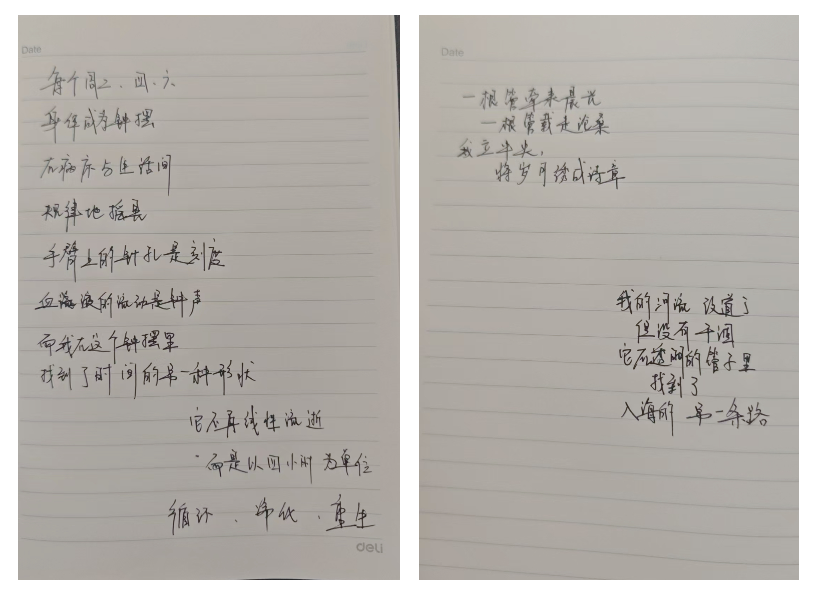 Date
每个周二、四、六
身体成为钟摆
在病床与生活间
规律地摇晃
手臂上的针孔是刻度
血液的流动是钟声
而我在这个钟摆里
找到了时间的另一种形状
它不再线性流逝
而是以四小时为单位
循环、净化、重生
deli
Date
一根管牵来晨光
一根管载走沧桑
我立中央,
将岁月透成诗章
我的河流 改道了
但没有干涸
它在透明的管子里
找到了
入海的 另一条路